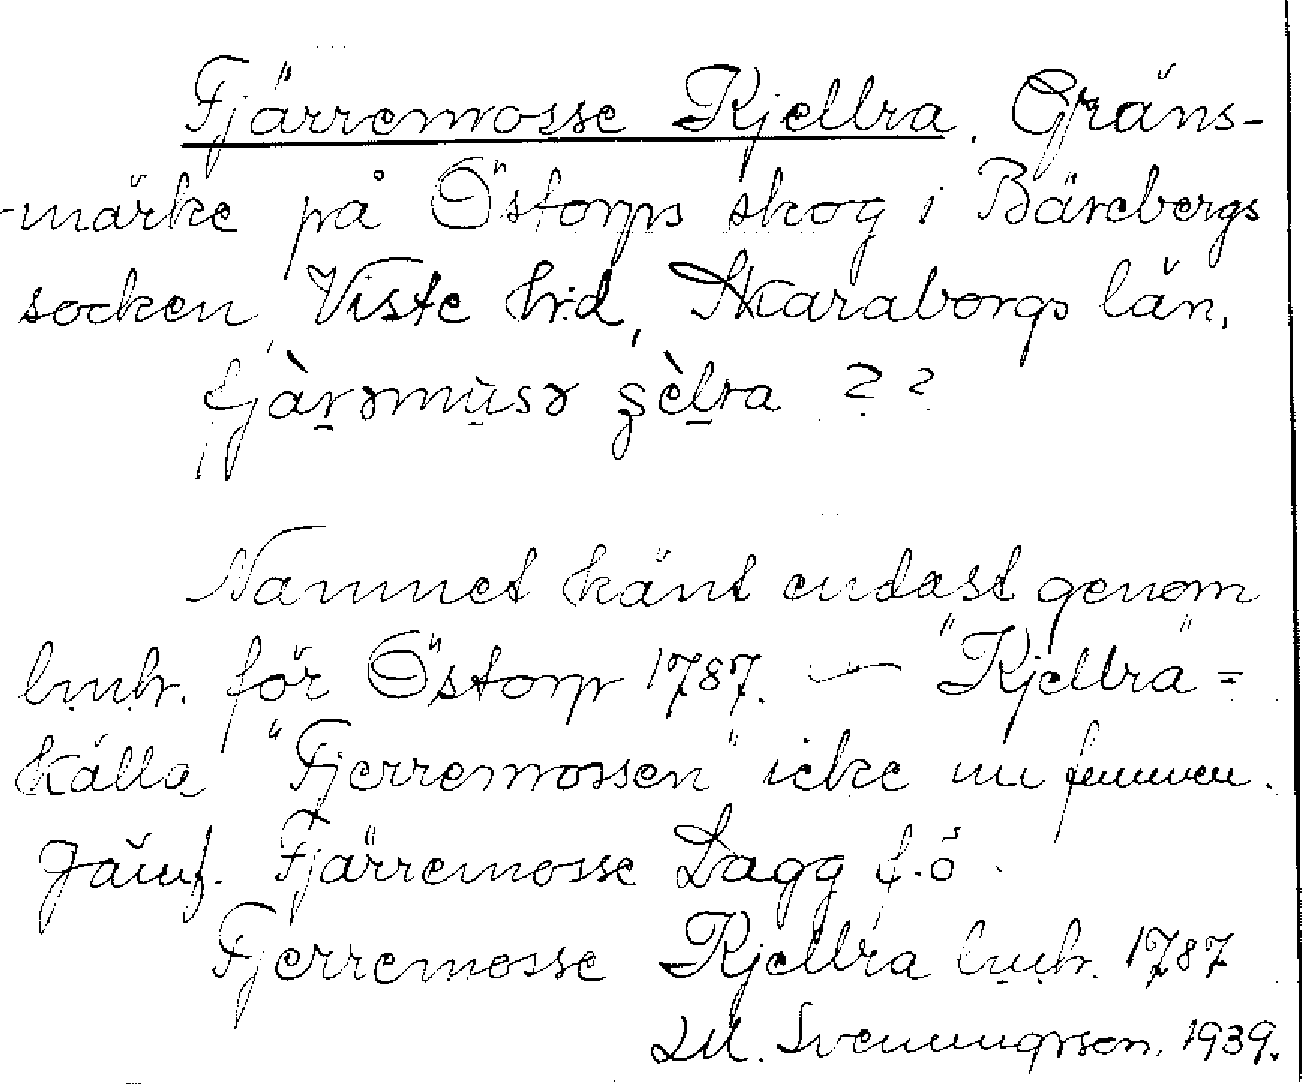 Fjärremosse Kjellra. Gräns-
-märke på Östorps skog i Bärebergs
socken, Viste hrd, Skaraborgs län.
Namnet känt endast genom
lmh. för Östorp 1787. — "Kjellra" =
källa "Fjerremossen" icke nu
Jämf. Fjärremosse Dagg f.ö.
Fjerremosse Kjellra lmh. 1787
1939.